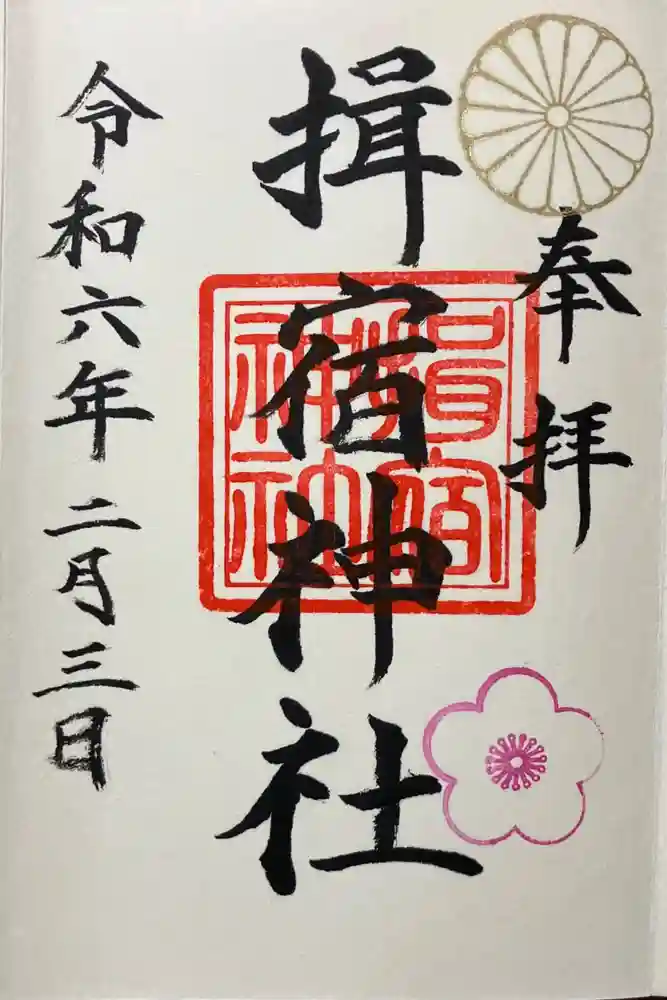 奉拝
揖宿神社
揖宿神社
令和六年二月三日